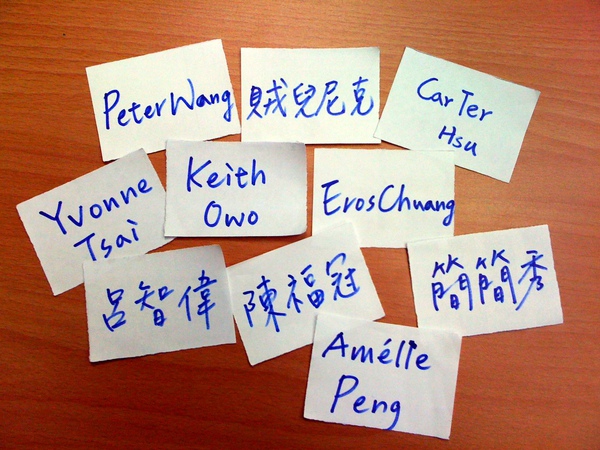 PeterWang
賊兒尼克
CarTer
Hsu
Yvonne
Tsai
Keith
Owo
ErosChuang
呂智偉
陳福冠
簡簡秀
Amélie
Peng